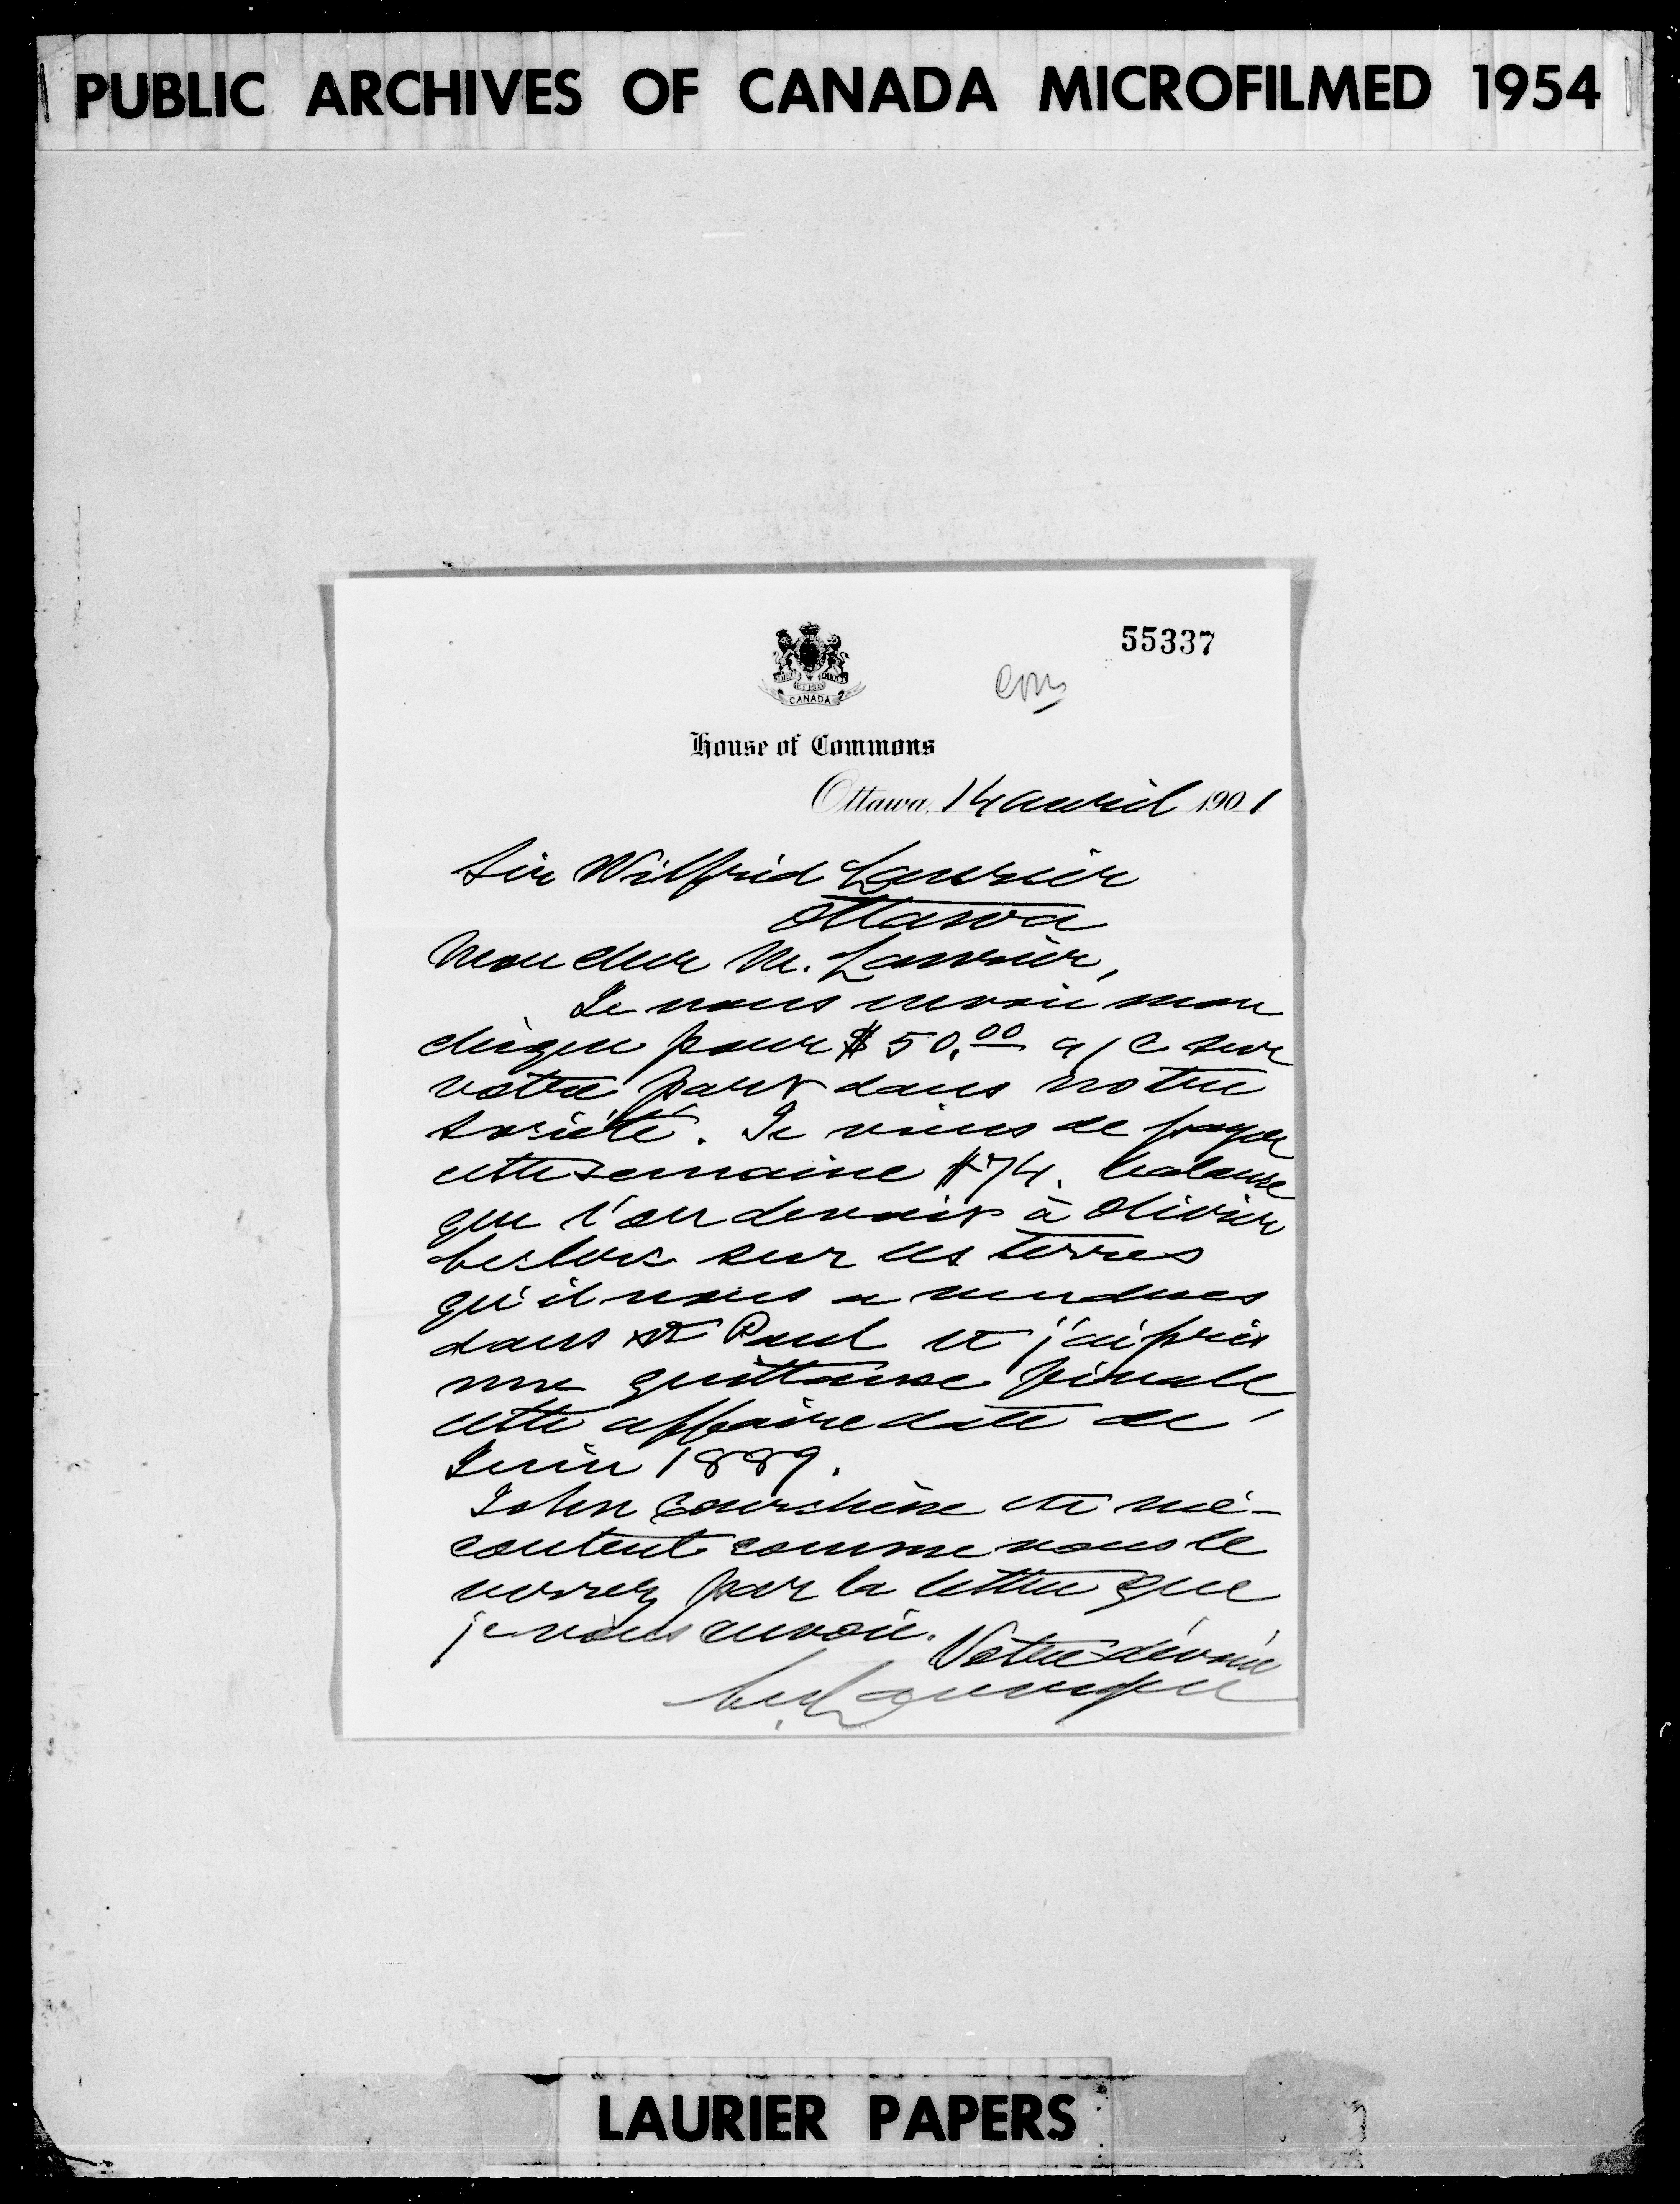 PUBLIC ARCHIVES OF CANADA MICROFILMED 1954
55337
CANADA
House of Commons
Ottawa, 14 avril 1901
Sir Wilfrid Laurier
Ottawa
Mon cher M. Laurier,
Je vous envoie mon
chèque pour $50.00 a/c sur
votre part dans notre
société. Je viens de payer
cette semaine $74. balance
que l'on devait à Olivier
sur les terres
qu'il nous a vendues
dans St Paul et j'ai pris
une quittance finale
cette affaire date de
Juin 1889.
John Courchène est mé-
content comme vous le
verrez par la lettre que
je vous envoie.
Votre dévoué
LAURIER PAPERS